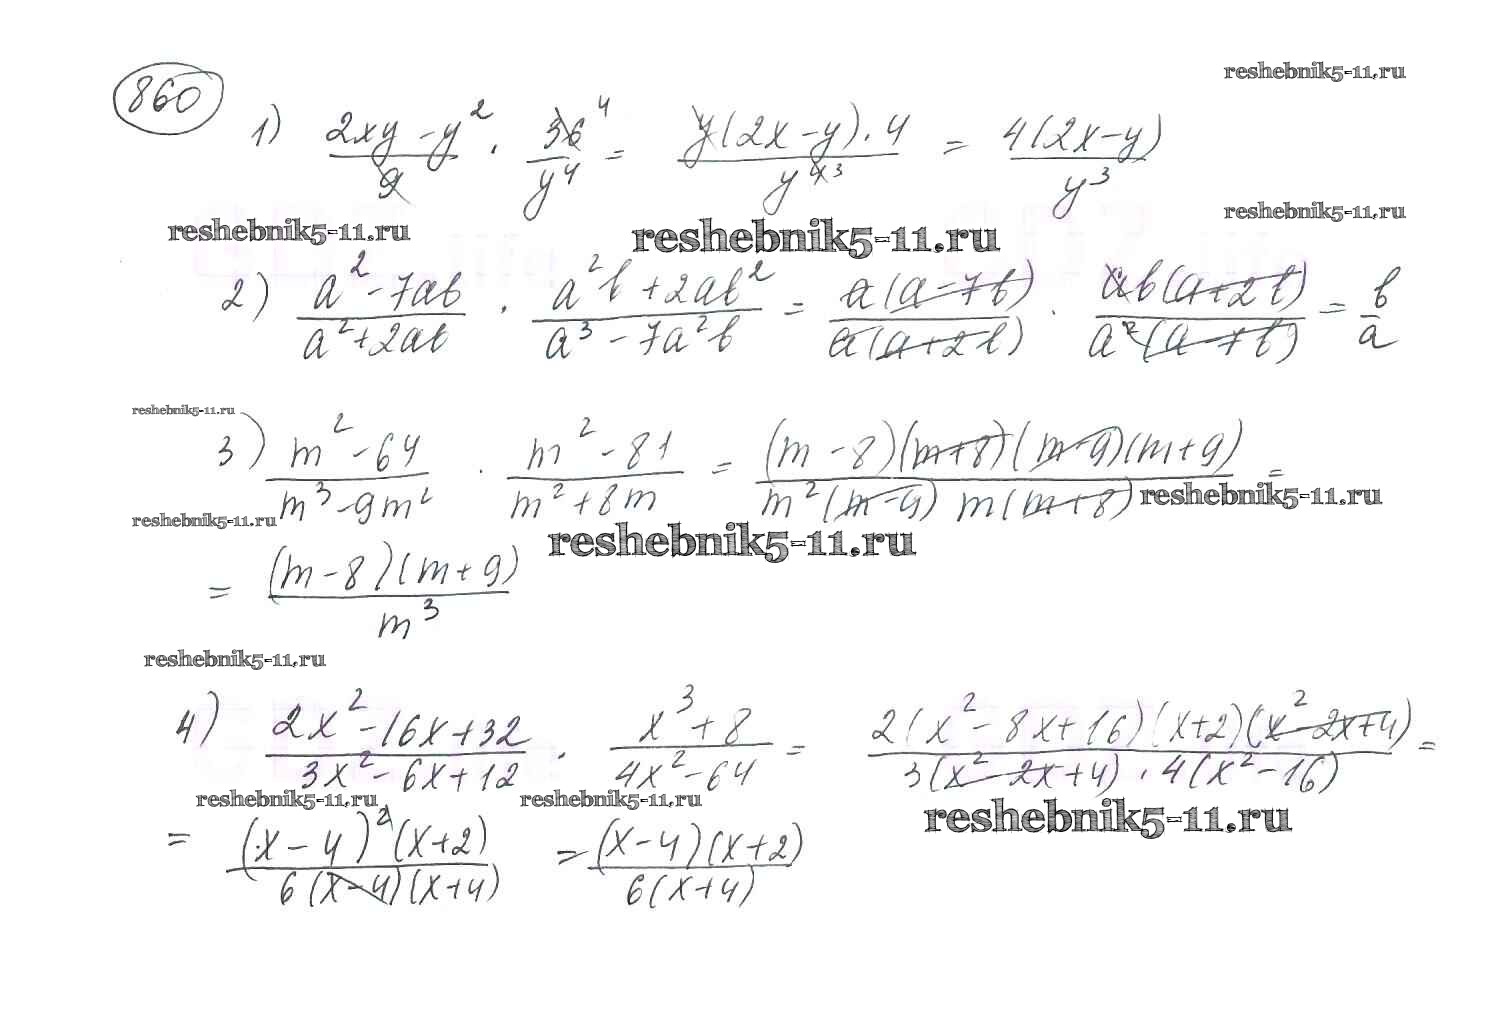 reshebnik5-11.ru
860
1) (2xy - y²)/9 · 36/y⁴ ⁴ = y(2x - y) · 4/y⁴ ³ = 4(2x - y)/y³
reshebnik5-11.ru reshebnik5-11.ru reshebnik5-11.ru
2) (a² - 7ab)/(a² + 2ab) · (a²b + 2ab²)/(a³ - 7a²b) = a(a - 7b)/a(a + 2b) · ab(a + 2b)/a²(a - 7b) = b/a
reshebnik5-11.ru
3) (m² - 64)/(m³ - 9m²) · (m² - 81)/(m² + 8m) = (m - 8)(m + 8)(m - 9)(m + 9)/m²(m - 9) m(m + 8) =
reshebnik5-11.ru
reshebnik5-11.ru reshebnik5-11.ru
= (m - 8)(m + 9)/m³
reshebnik5-11.ru
4) (2x² - 16x + 32)/(3x² - 6x + 12) · (x³ + 8)/(4x² - 64) = 2(x² - 8x + 16)(x + 2)(x² - 2x + 4)/3(x² - 2x + 4) · 4(x² - 16) =
reshebnik5-11.ru reshebnik5-11.ru reshebnik5-11.ru
= (x - 4)²(x + 2)/6(x - 4)(x + 4) = (x - 4)(x + 2)/6(x + 4)